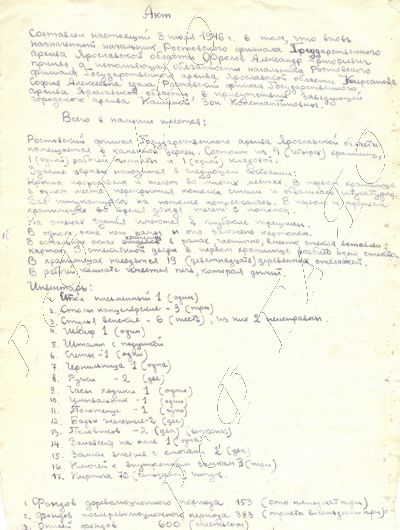 Акт
Составлен настоящий 3 июля 1946 г. в том, что вновь
назначенный начальник Ростовского филиала Государственного
архива Ярославской области Фролов Александр Григорьевич
принял, а исполняющая обязанности начальника Ростовского
филиала Государственного архива Ярославской области
София Алексеевна сдала, Ростовский филиал Государственного
архива Ярославской области, в присутствии заведующей
городского архива Зои Константиновны.
Всего в наличии имеется:
Ростовский филиал Государственного архива Ярославской области
помещается в каменной церкви. Состоит из 4 (четырех) хранилищ,
1 (одной) рабочей комнаты и 1 (одной) кладовой.
Здание церкви находится в следующем состоянии:
Крыша проржавела и течет во многих местах. В первом хранилище
в одном месте перекрытия потолка сгнили и обвалилась штукатурка.
Вся штукатурка на потолке потрескалась. В первом и
хранилищах во время дождя течет с потолка.
На стенах здания имеются 2 глубокие трещины.
В одном окне нет рамы и оно заложено картоном.
В остальных окнах в рамах частично, вместо стекол вставлен
картон. В стеклянной двери в первом хранилище разбито одно стекло.
В хранилищах находятся 19 (девятнадцать) деревянных стеллажей.
В рабочей комнате имеется печь, которая дымит.
Инвентарь:
1. Стол письменный 1 (один)
2. Столы канцелярские - 3 (три)
3. Стулья венские - 6 (шесть), из них 2 неисправны
4. Шкаф 1 (один)
5. Штамп с подушкой
6. Счеты - 1 (одни)
7. Чернильница 1 (одна)
8. Ручки - 2 (две)
9. Часы ходики 1 (одни)
10. Умывальник - 1 (один)
11. Полотенце - 1 (одно)
12. Бачки железные - 2 (два)
13. Половиков - 2 (два)
14. Занавеска на окне 1 (одна)
15. Замки висячие с ключами 2 (два)
16. Ключей к внутренним замкам 3 (три)
17. Картона 70 (семьдесят) штук.
1. Фондов дореволюционного периода 153 (сто пятьдесят три)
2. Фондов послереволюционного периода 383 (триста восемьдесят три)
3. Описей фондов 600 (шестьсот)